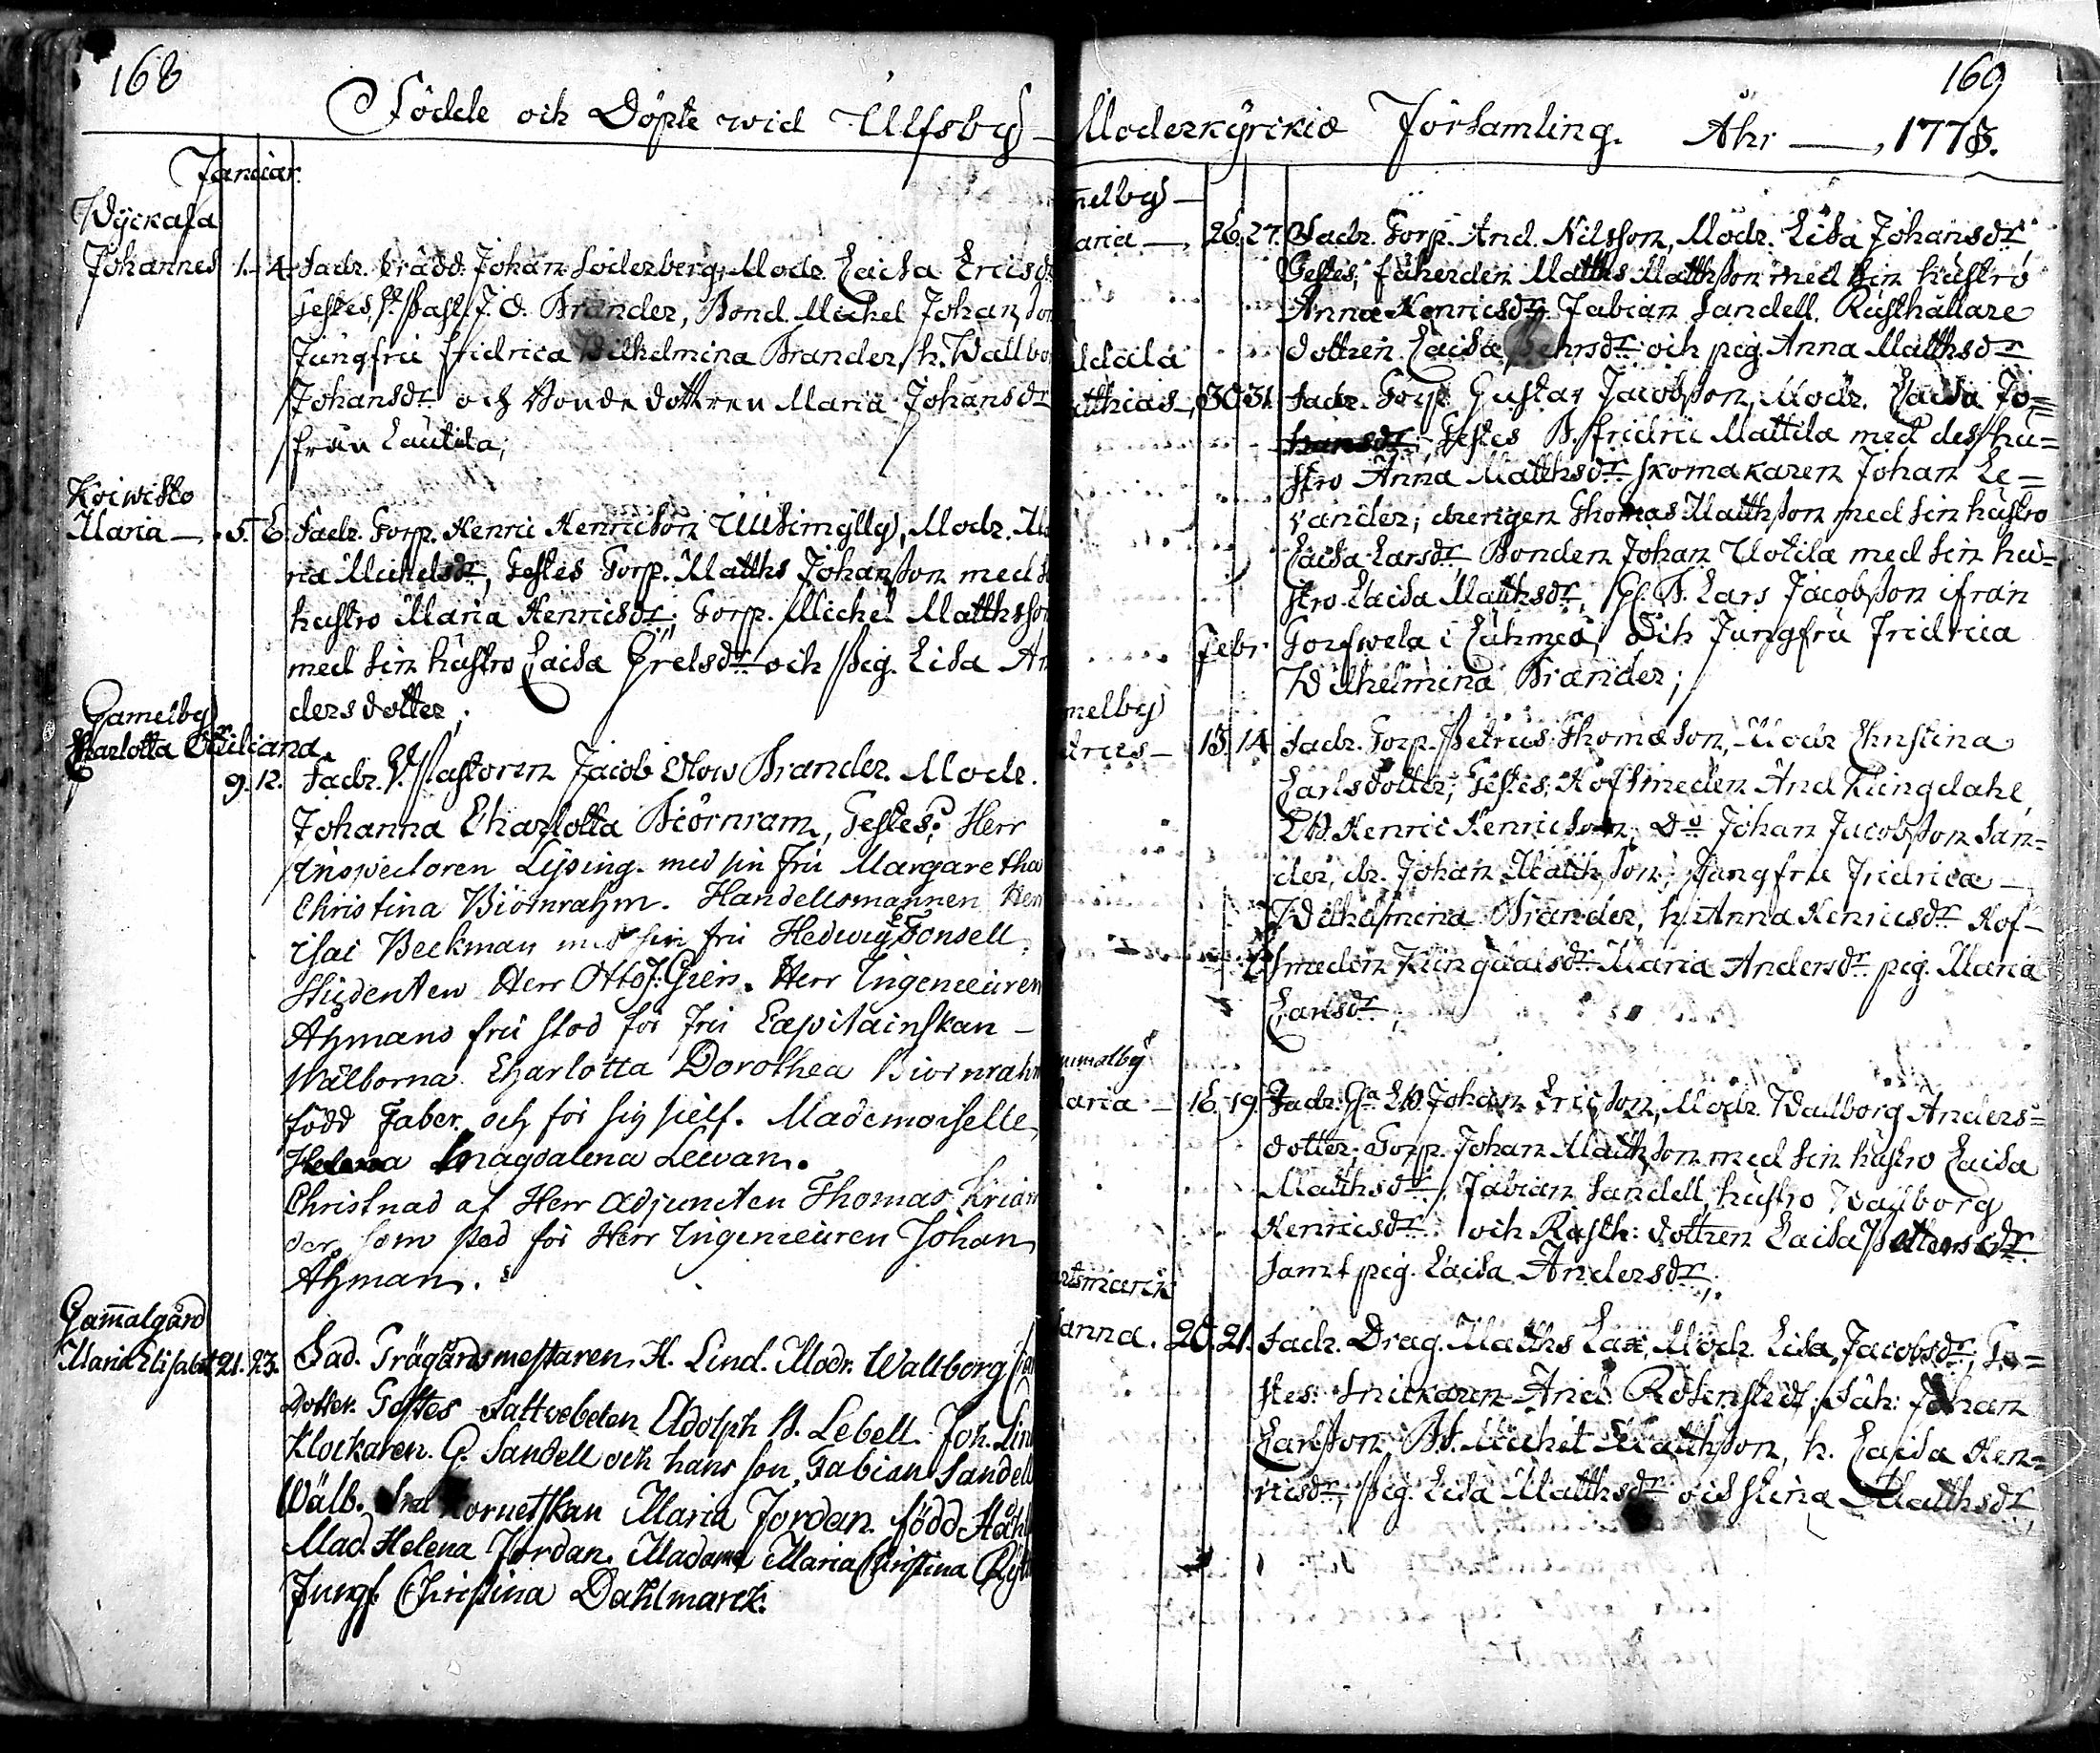 168
Födde och Döpte wid Ulfsby
Januar.
Wyckala
Johannes 1. 4. Fadr. Johan Söderberg, Modr. Caisa Ericsdr
Testes, J. O. Brander, Bond. Michel Johansson
Jungfru Fridrica Wilhelmina Brander, h. Wallbo
Johansdr och Bonde dottren Maria Johansdr
från Lautila;
Koiwisto
Maria 5. 6. Fadr. Torp. Henric Henricson Uusimylly, Modr. Ma
ria Michelsdr, Testes Torp. Matths Johansson med s
hustro Maria Henricsdr; Torp. Michel Matthsson
med sin hustro Caisa Grelsdr och Pig. Lisa An
dersdotter;
Gamelby
Charlotta Juliana
9. 12. Fadr. V. Pastoren Jacob Olow Brander. Modr.
Johanna Charlotta Biörnram, Testes: Herr
Inspectoren Lysing. med sin fru Margaretha
Christina Biörnrahm. Handellsmannen Herr
Isac Beckman med sin fru Hedwig Fonsell.
Studenten Herr Otto J. Gien. Herr Ingenieuren
Ahmans fru stod för fru Capitainskan
Wälborna Charlotta Dorothea Biörnrahm
född Faber och för sig sielf. Mademoiselle
Helena Magdalena Lewan.
Christnad af Herr Adjuncten Thomas Krian
der som stod för Herr Ingenieuren Johan
Ahman.
Gam̄algård
Maria Elisabet 21. 23. Fad. Trägårdsmestaren H. Lind. Modr. Wallborg
dotter. Testes Adolph B. Lebell. Joh. Lin
Klockaren G. Sandell och hans son, Fabian Sandell
Wälb. Fru Cornetskan Maria Jordan. född Ståhl
Mad. Helena Jordan. Madame Maria Christina
Jungf. Christina Dahlmarck.
169
Moderkyrckio Församling. Ahr 1778.
melby
aria 26. 27. Fadr. Torp. And. Nilsson, Modr. Lisa Johansdr
Testes; Matths Matthsson med sin hustro
Anna Henricsdr. Fabian Sandell. Rusthållare
dottren Caisa och pig. Anna Matthsdr
atthias 30. 31. Fadr. Torp. Gustaf Jacobsson, Modr. Caisa Jo=
hansdr; Testes B. Fridric Mattila med dess hu=
stro Anna Matthsdr Skomakaren Johan Le=
vander; drengen Thomas Matthsson med sin hustro
Caisa Larsdr Bonden Johan Uotila med sin hu=
stro Caisa Matthsdr; B. Lars Jacobsson ifrån
Febr. i och Jungfru Fridrica
Wilhelmina Brander;
melby
13. 14. Fadr. Torp. Petrus Thomason, Modr Christina
Carlsdotter; Testes; Hofsmeden And Kungdahl,
Henric Henricson; Do Johan Jacobsson San=
der, dr. Johan Matthsson; Jungfru Fridrica
Wilhelmina Brander, h. Anna Henricsdr Hof=
smeden Kungdalsdr Maria Andersdr pig. Maria
Carlsdr;
ammalby
aria 16. 19. Fadr. Johan Ericson, Modr. Wallborg Anders=
dotter; Torp. Johan Matthsson med sin hustro Caisa
Matthsdr; Fabian Sandell, hustro Wallborg
Henricsdr. och Rusth: dottren Caisa
samt pig. Caisa Andersdr;
anna. 20. 21. Fadr. Drag. Matths Lax, Modr. Lisa Jacobsdr; Te=
stes: Snickaren And. Rosenstedt; Johan
Carlsson, Michel Matthsson, h. Caisa Hen=
ricsdr, Pig. Lisa Matthsdr och Stina Matthsdr,